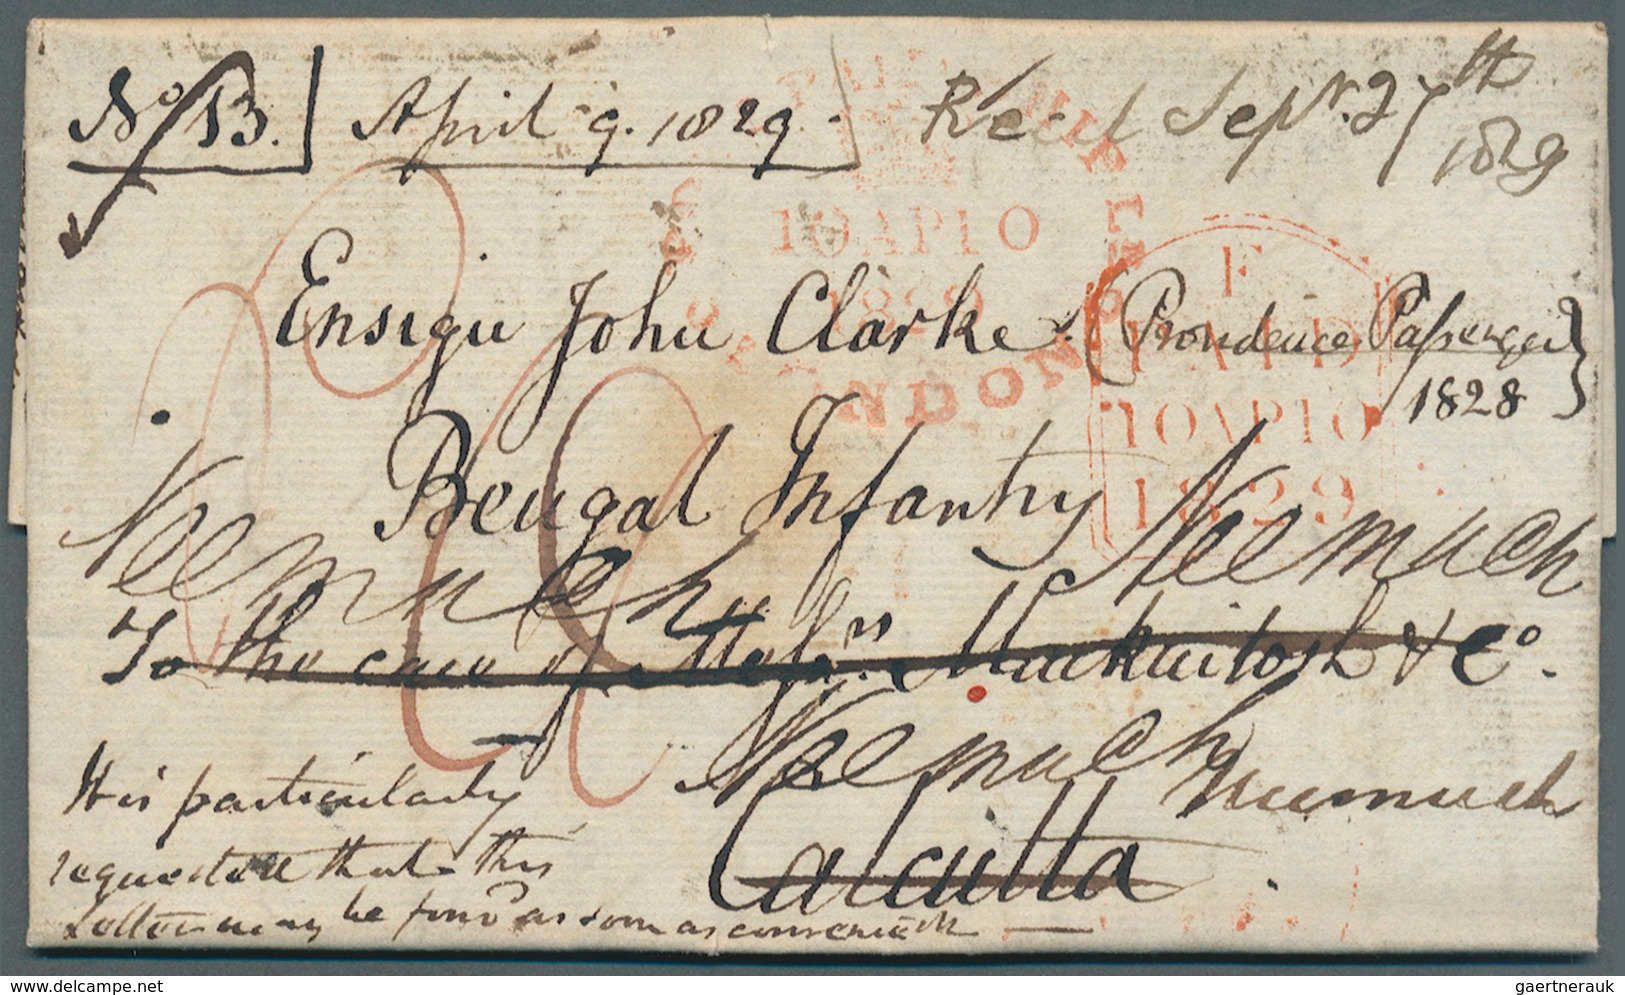 No 13. April 9. 1829. Recd Sepr. 27th
1829
PAID SHIP LETTER LONDON
10 AP 10
1829
F
PAID
10 AP 10
1829
Ensign John Clarke (Providence Passenger
1828}
Bengal Infantry
Neemuch Neemuch
To the care of Messrs Mackintosh & Co.
Neemuch Neemuch
Calcutta
It is particularly
requested that this
Letter may be forwd as soon as convenient
www.ansichtskartenversand.com
gaertnerauk